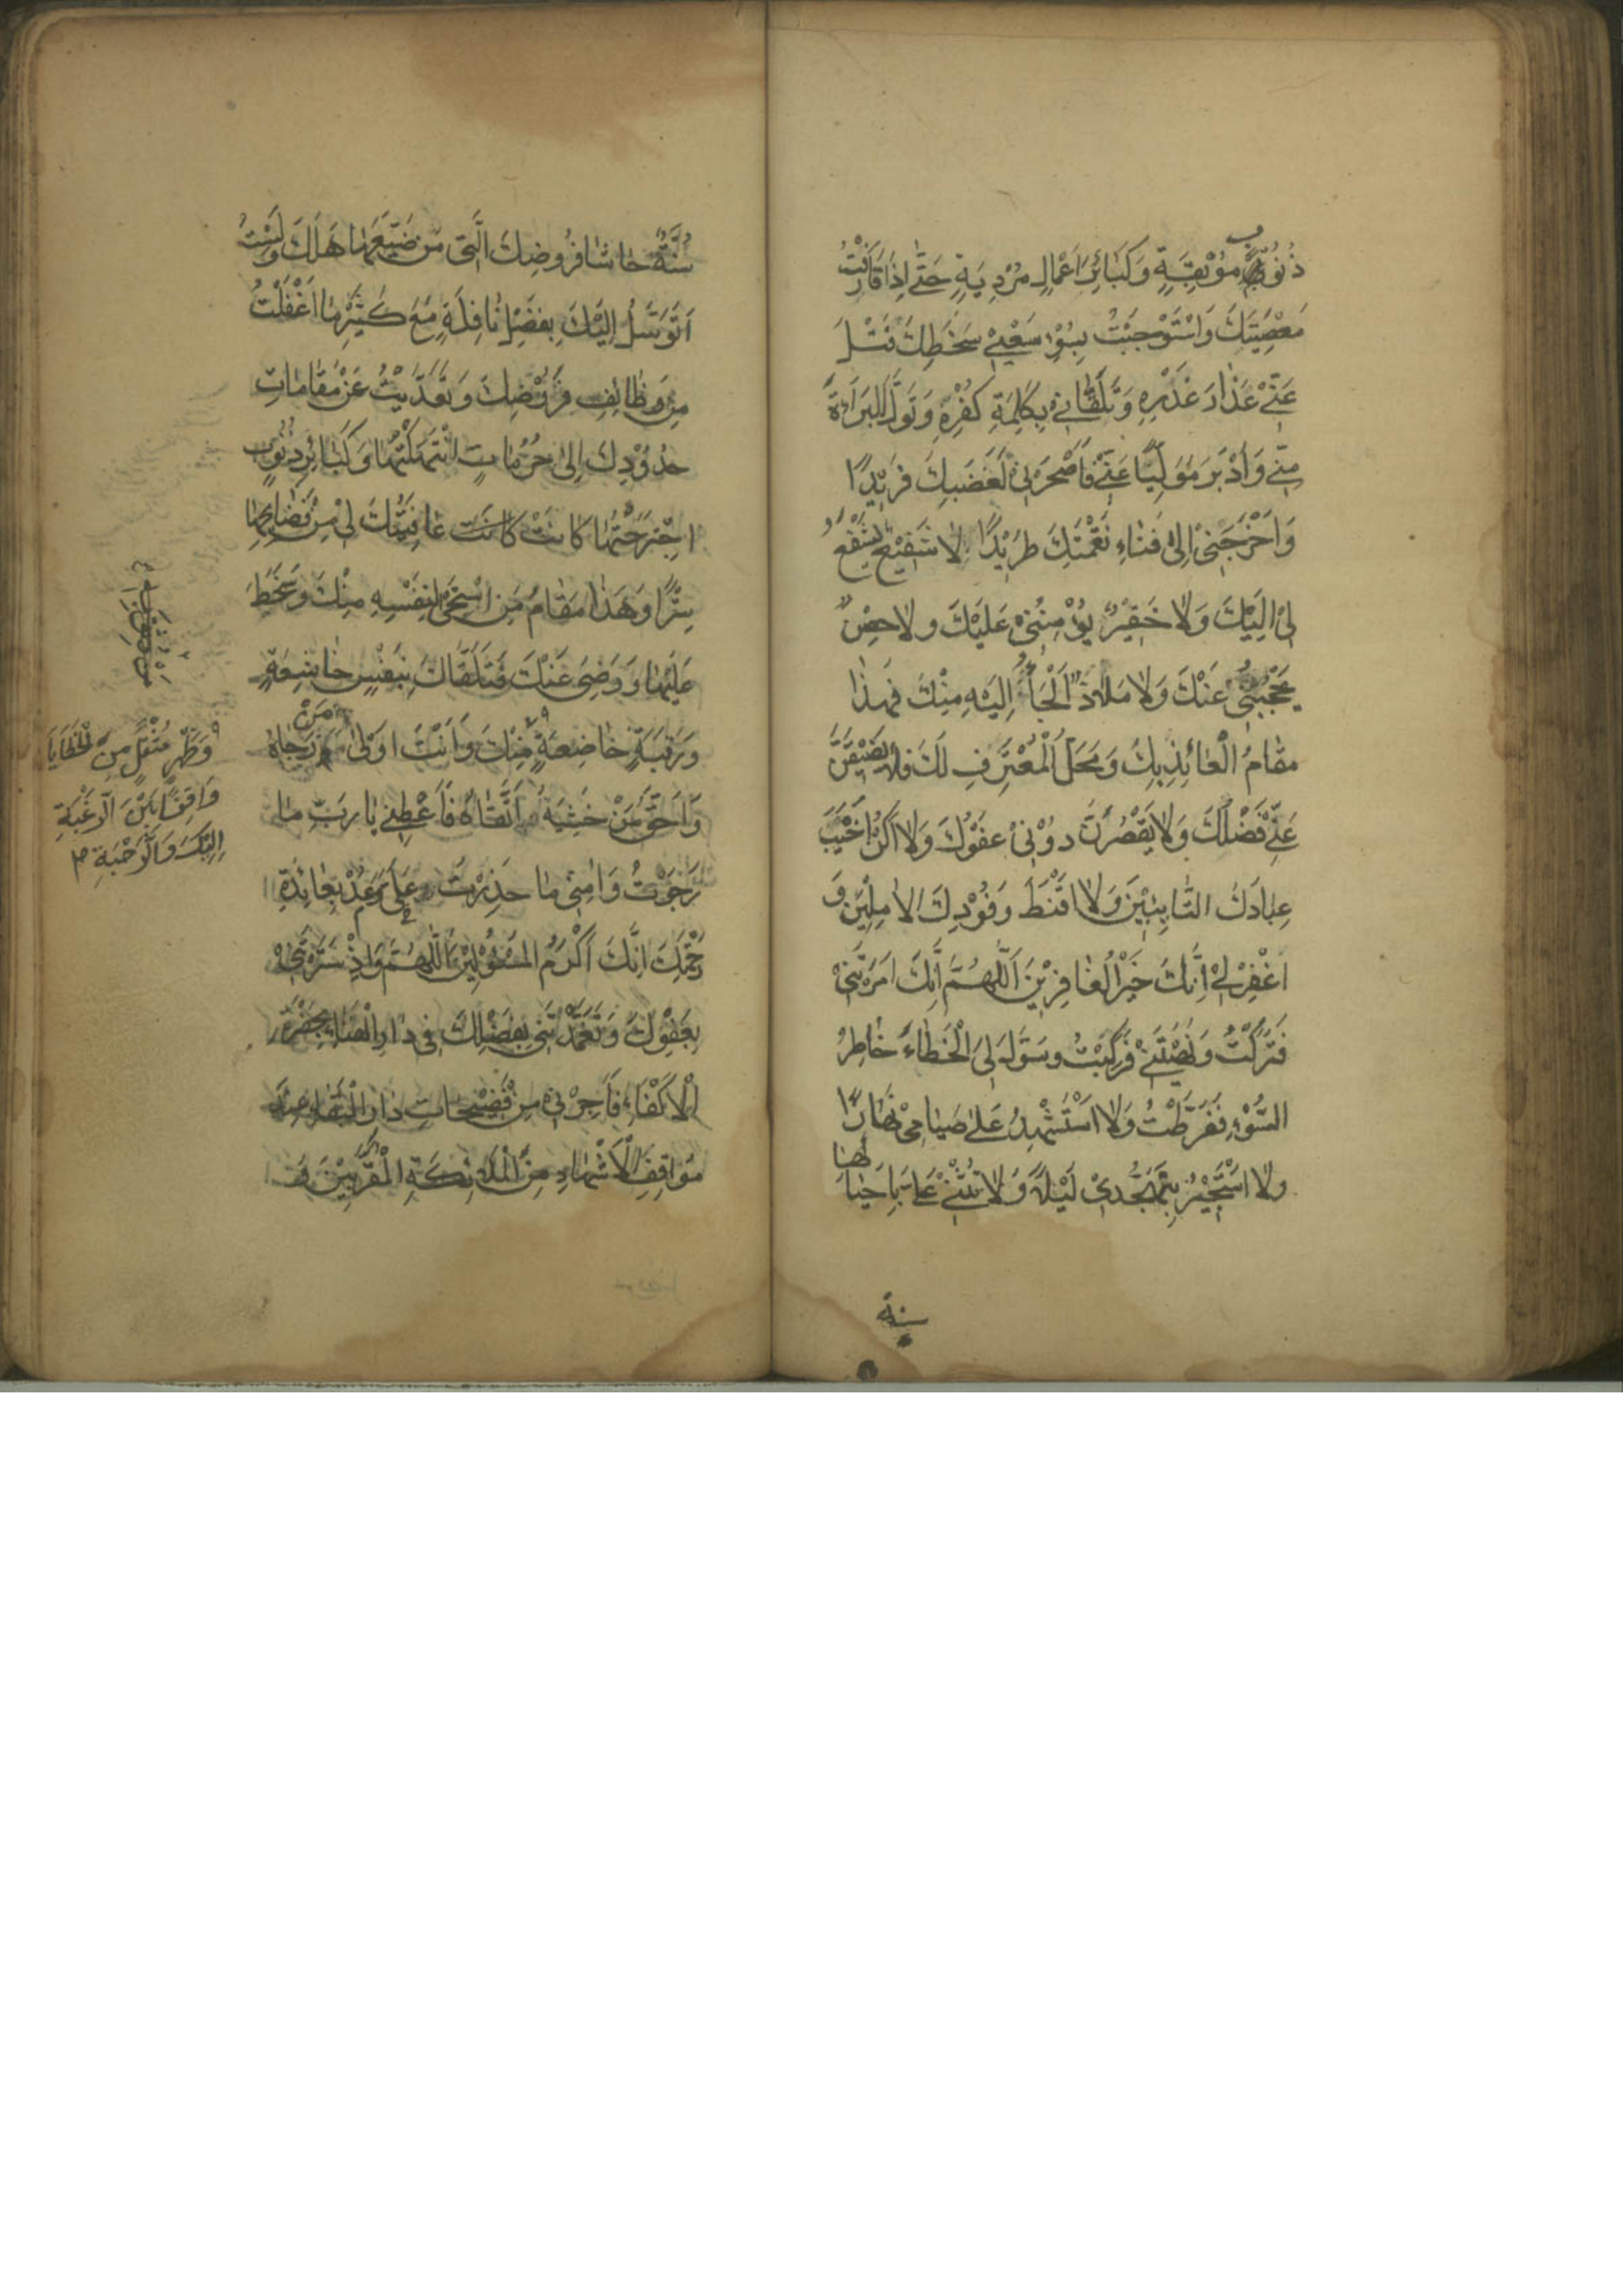 ذُنُوبٍ مُوْبِقَةٍ وَكَبَائِرِ اَعْمَالٍ مُرْدِيَةٍ حَتّٰى اِذَا قَارَفْتُ
مَعْصِيَتَكَ وَاسْتَوْجَبْتُ بِسُوْءِ سَعْيِيْ سَخَطِكَ فَتَلَ
عَنِّيْ عَذَارَ غَدْرِهِ وَتَلَقَّانِيْ بِكَلِمَةِ كُفْرِهِ وَتَوَلَّى الْبَرَاءَةَ
مِنِّيْ وَاَدْبَرَ مُوَلِّيًا عَنِّيْ فَاَصْحَرَنِيْ لِغَضَبِكَ فَرِيْدًا
وَاَخْرَجَنِيْ اِلٰى فِنَاءِ نَقْمَتِكَ طَرِيْدًا لَا شَفِيْعٌ يَشْفَعُ
لِيْ اِلَيْكَ وَلَا خَفِيْرٌ يُؤْمِنُنِيْ عَلَيْكَ وَلَا حِصْنٌ
يَحْجُبُنِيْ عَنْكَ وَلَا مَلَاذٌ اَلْجَأُ اِلَيْهِ مِنْكَ فَهٰذَا
مَقَامُ الْعَائِذِ بِكَ وَمَحَلُّ الْمُعْتَرِفِ لَكَ فَلَا يَضِيْقَنَّ
عَنِّيْ فَضْلُكَ وَلَا يَقْصُرَنَّ دُوْنِيْ عَفْوُكَ وَلَا اَكُنْ اَخْيَبَ
عِبَادِكَ التَّائِبِيْنَ وَلَا اَقْنَطَ وُفُوْدِكَ الْاٰمِلِيْنَ وَ
اغْفِرْ لِيْ اِنَّكَ خَيْرُ الْغَافِرِيْنَ اَللّٰهُمَّ اِنَّكَ اَمَرْتَنِيْ
فَتَرَكْتُ وَنَهَيْتَنِيْ فَرَكِبْتُ وَسَوَّلَ لِيَ الْخَطَاءَ خَاطِرُ
السُّوْءِ فَفَرَّطْتُ وَلَا اَسْتَشْهِدُ عَلٰى صِيَامِيْ نَهَارًا
وَلَا اَسْتَجِيْرُ بِتَهَجُّدِيْ لَيْلًا وَلَا تُثْنِيْ عَلَيَّ بِاِحْيَائِهَا
سنة
سُنَّةٌ حَاشَا فُرُوْضِكَ الَّتِيْ مَنْ ضَيَّعَهَا هَلَكَ وَلَسْتُ
اَتَوَسَّلُ اِلَيْكَ بِفَضْلِ نَافِلَةٍ مَعَ كَثِيْرِ مَا اَغْفَلْتُ
مِنْ وَظَائِفِ فُرُوْضِكَ وَتَعَدَّيْتُ عَنْ مَقَامَاتِ
حُدُوْدِكَ اِلٰى حُرُمَاتٍ انْتَهَكْتُهَا وَكَبَائِرِ ذُنُوْبٍ
اجْتَرَحْتُهَا كَانَتْ عَافِيَتُكَ لِيْ مِنْ فَضَائِحِهَا
سِتْرًا وَهٰذَا مَقَامُ مَنِ اسْتَحْيٰى لِنَفْسِهِ مِنْكَ وَسَخِطَ
عَلَيْهَا وَرَضِيَ عَنْكَ فَتَلَقَّاكَ بِنَفْسٍ خَاشِعَةٍ
وَرَقَبَةٍ خَاضِعَةٍ مِنْكَ وَاَنْتَ اَوْلٰى مَنْ رَجَاهُ
وَاَحَقُّ مَنْ خَشِيَهُ وَاتَّقَاهُ فَاَعْطِنِيْ يَا رَبِّ مَا
رَجَوْتُ وَاٰمِنِّيْ مَا حَذِرْتُ وَعُدْ عَلَيَّ بِعَائِدَةِ
رَحْمَتِكَ اِنَّكَ اَكْرَمُ الْمَسْئُوْلِيْنَ اَللّٰهُمَّ وَاِذْ سَتَرْتَنِيْ
بِعَفْوِكَ وَتَغَمَّدْتَنِيْ بِفَضْلِكَ فِيْ دَارِ الْفَنَاءِ بِحَضْرَةِ
الْاَكْفَاءِ فَاَجِرْنِيْ مِنْ فَضِيْحَاتِ دَارِ الْبَقَاءِ عِنْدَ
مَوَاقِفِ الْاَشْهَادِ مِنَ الْمَلَائِكَةِ الْمُقَرَّبِيْنَ وَ
وَظَهْرٍ مُثْقَلٍ مِنَ الْخَطَايَا
وَاقِفًا بَيْنَ الرَّغْبَةِ
اِلَيْكَ وَالرَّهْبَةِ